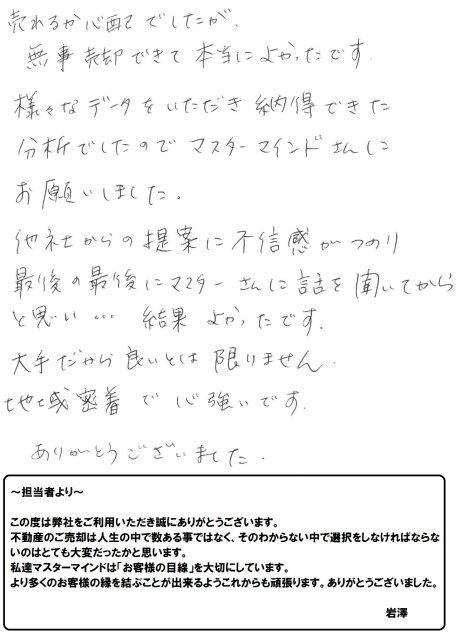 売れるか心配でしたが、
無事売却できて本当によかったです。
様々なデータをいただき納得できた
分析でしたのでマスターマインドさんに
お願いしました。
他社からの提案に不信感がつのり
最後の最後にマスターさんに話を聞いてから
と思い… 結果よかったです。
大手だから良いとは限りません。
地域密着で心強いです。
ありがとうございました。
～担当者より～
この度は弊社をご利用いただき誠にありがとうございます。
不動産のご売却は人生の中で数ある事ではなく、そのわからない中で選択をしなければならな
いのはとても大変だったかと思います。
私達マスターマインドは「お客様の目線」を大切にしています。
より多くのお客様の縁を結ぶことが出来るようこれからも頑張ります。ありがとうございました。
岩澤